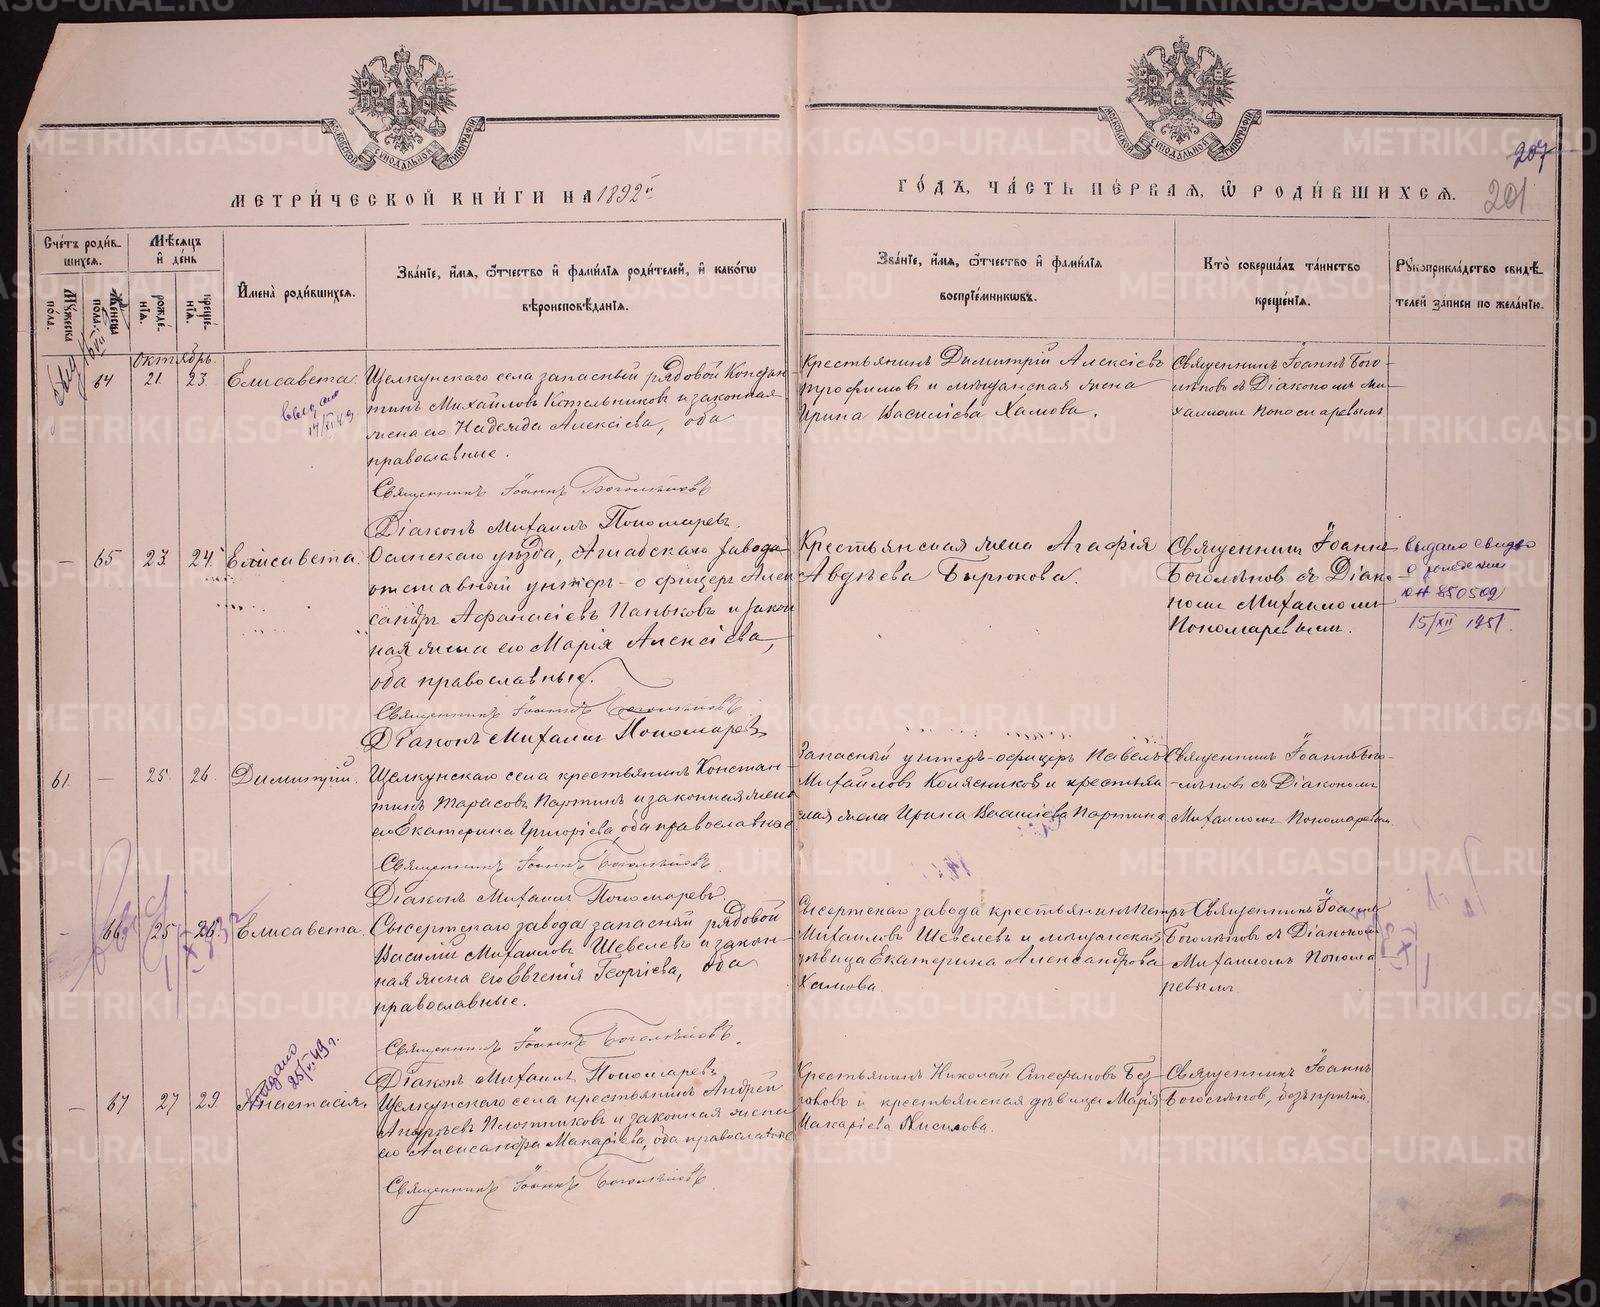 МЕТРИ́ЧЕСКОЙ КНИ́ГИ НА 1892й
ГО́ДЪ, ЧА́СТЬ ПЕ́РВАЯ, Ѿ РОДИ́ВШИХСѦ.
207
201
МОСКОВСКОЙ СѴНОДАЛЬНОЙ ТИПОГРАФІИ
МОСКОВСКОЙ СѴНОДАЛЬНОЙ ТИПОГРАФІИ
Сче́тъ роди́вшихсѧ.
Мꙋ́жеска пола.
Же́нска пола.
Мѣ́сѧцъ и҆ де́нь
рожде́нїѧ.
креще́нїѧ.
И҆мена̀ роди́вшихсѧ.
Зва́нїе, и҆́мѧ, ѻ҆́тчество и҆ фами́лїѧ роди́телей, и҆ како́гѡ
вѣроисповѣ́данїѧ.
Зва́нїе, и҆́мѧ, ѻ҆́тчество и҆ фами́лїѧ
воспрїе́мникѡвъ.
Кто̀ соверша́лъ та́инство
креще́нїѧ.
Рꙋкоприкла́дство свидѣ́телей за́писи по жела́нїю.
Октябрь.
64
21.
23.
Елисавета.
Выдано
14/XI 49
Щелкунскаго села запасный рядовой Констан-
тинъ Михайловъ Котельниковъ и законная
жена его Надежда Алексіева, оба
православные.
Священникъ Іоаннъ Боголѣповъ
Діаконъ Михаилъ Пономаревъ.
Крестьянинъ Димитрій Алексіевъ
и мѣщанская жена
Ирина Василіева Хамова.
Священникъ Іоаннъ Бого-
лѣповъ съ Діакономъ Ми-
хаиломъ Пономаревымъ.
–
65
23.
24.
Елисавета.
Осинскаго уѣзда, Ашабскаго завода
отставный унтеръ-офицеръ Алек
сандръ Афанасіевъ Паньковъ и закон
ная жена его Марія Алексіева,
оба православные.
Священникъ Іоаннъ Боголѣповъ
Діаконъ Михаилъ Пономаревъ
Крестьянская жена Агафія
Авдѣева Бирюкова.
Священникъ Іоаннъ
Боголѣповъ съ Діако-
номъ Михаиломъ
Пономаревымъ.
выдано свид-во
о рождении
850502
15/XII 1951.
61
–
25.
26.
Димитрій.
Щелкунскаго села крестьянинъ Констан-
тинъ Тарасовъ Партинъ и законная жена
его Екатерина Григоріева, оба православные
Священникъ Іоаннъ Боголѣповъ
Діаконъ Михаилъ Пономаревъ.
Запасный унтеръ-офицеръ Павелъ
Михайловъ Колясниковъ и крестьян
ская жена Ирина Василіева Партина
Священникъ Іоаннъ Бого-
-лѣповъ съ Діакономъ
Михаиломъ Пономаревымъ.
–
66
25
26.
Елисавета.
Сысертскаго завода запасный рядовой
Василій Михайловъ Шевелевъ и закон-
ная жена его Евгенія Георгіева, оба
православные.
Священникъ Іоаннъ Боголѣповъ.
Діаконъ Михаилъ Пономаревъ
Сысертскаго завода крестьянинъ Петръ
Михайловъ Шевелевъ и мѣщанская
дѣвица Екатерина Александрова
Хамова
Священникъ Іоаннъ
Боголѣповъ съ Діакономъ
Михаиломъ Понома
ревымъ.
Выдано
49 г.
–
67
27
29
Анастасія.
Щелкунскаго села крестьянинъ Андрей
Андреевъ Плотниковъ и законная жена
его Александра Макаріева, оба православные
Священникъ Іоаннъ Боголѣповъ
Крестьянинъ Николай Стефановъ
и крестьянская дѣвица Марія
Макаріева
Священникъ Іоаннъ
Боголѣповъ, безъ причта.